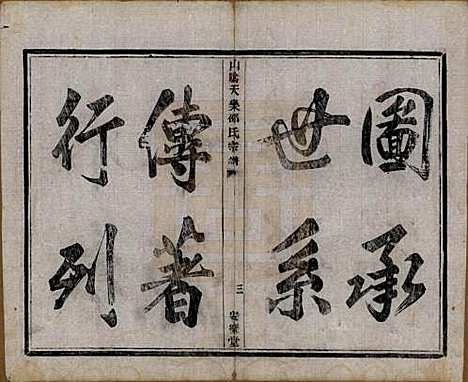 圖承
世系
山陰天樂邵氏宗譜
三
安樂堂
傳著
行列